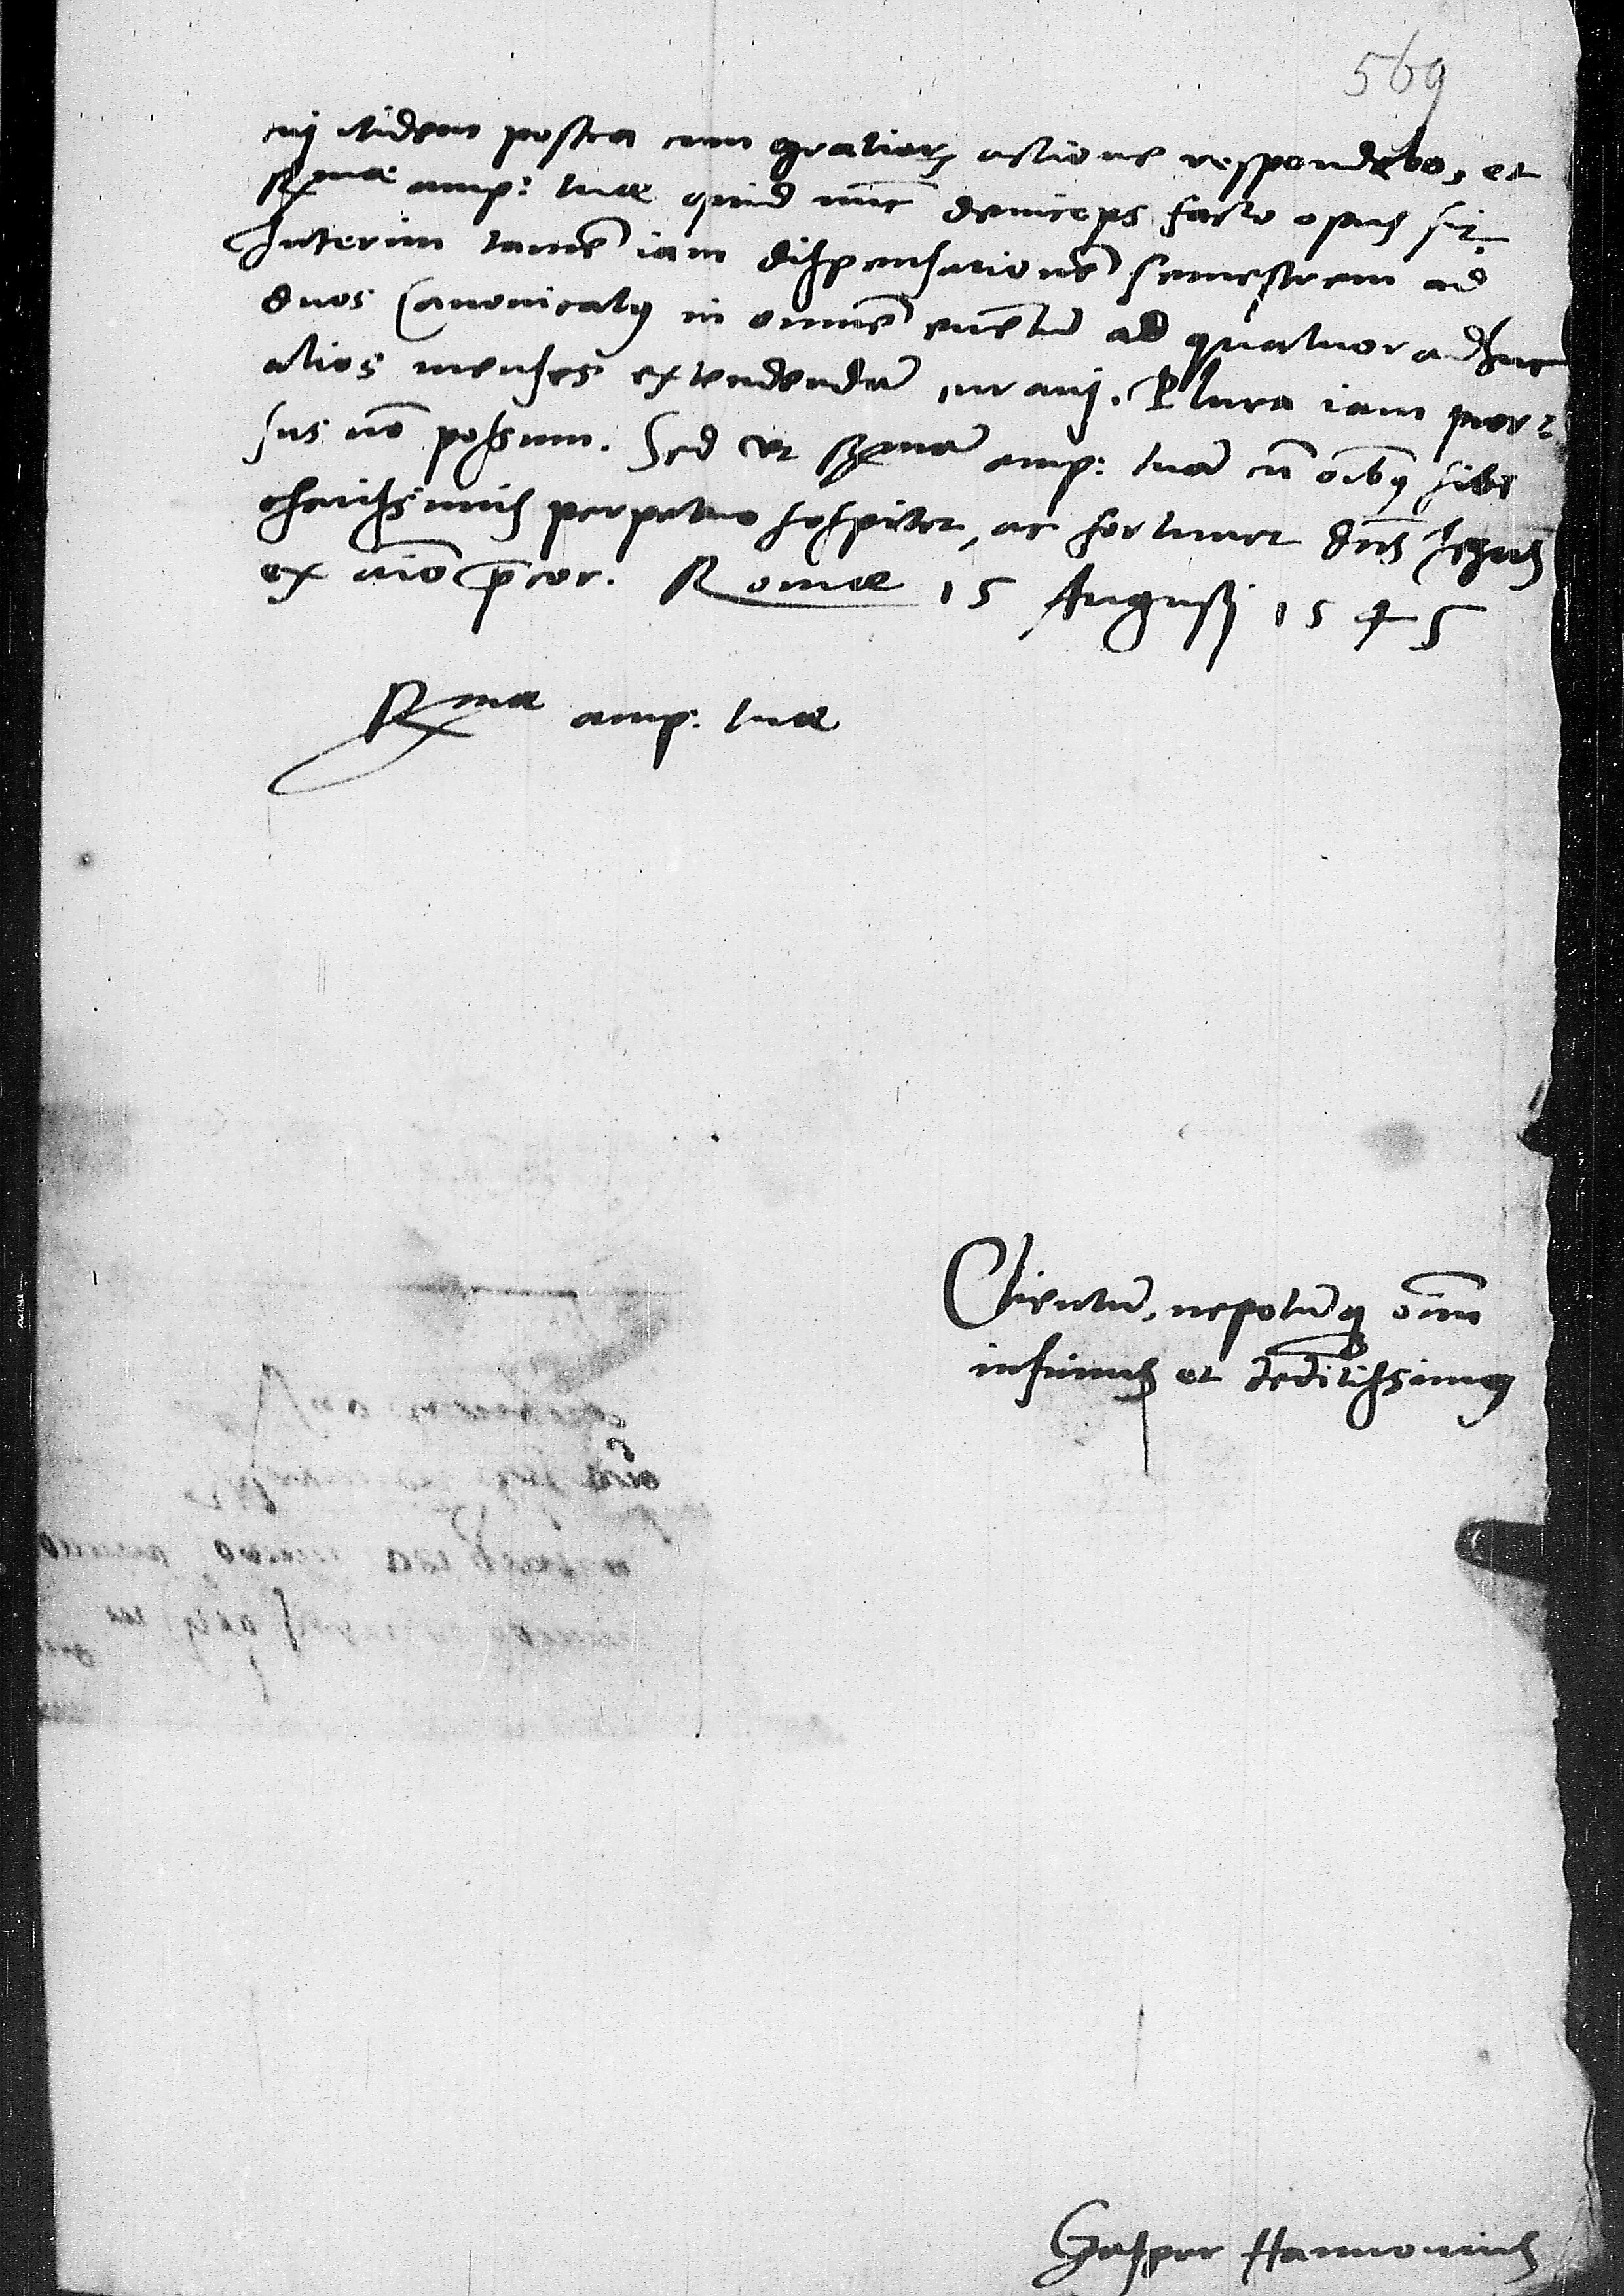 569
cui itidem postea cum gratiar[um] actione respondebo, et
Rmae amp: tuae quid nunc deinceps facto opus sit.
Interim tamē iam dispensationē semestrem ad
duos Canonicatus in omnē euētū ad quatuor adhuc
alios menses extendendā curaui. Plura iam pror-
sus nō possum. Sed vt Rmā amp: tuā cū oībus sibi
charissimis perpetuo sospitet, ac fortunet dn̄s Iesus
ex aīo p̄cor. Romae 15 Augusti 1545
Rmae amp: tuae
Clientū, nepotūq oīm
infimus et deditissimus
Gasper Hannouius